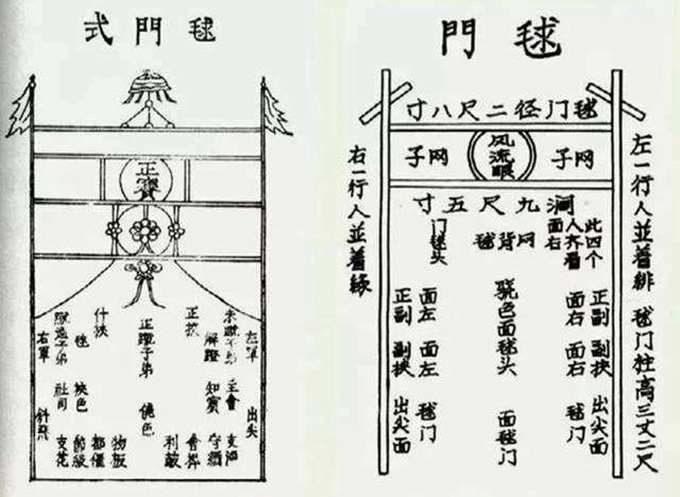 毬門式
左軍 出尖
主會
解蹬 知賓
正挾
正蹴子弟 饒色
什挾
都催
物板
挾色 節級
社司 支花
右軍 斜飛
毬門
毬门径二尺八寸
网子 风流眼 网子
九尺五寸
左一行人並着緋 毬门柱高三丈二尺
此四个
人齐看
面右
网背毬
门毬头
正副 副挾 出尖面
面右 面右 毬门
骁色面毬头 面毬门
面左 面左 毬门
正副 副挾 出尖面
右一行人並着緑